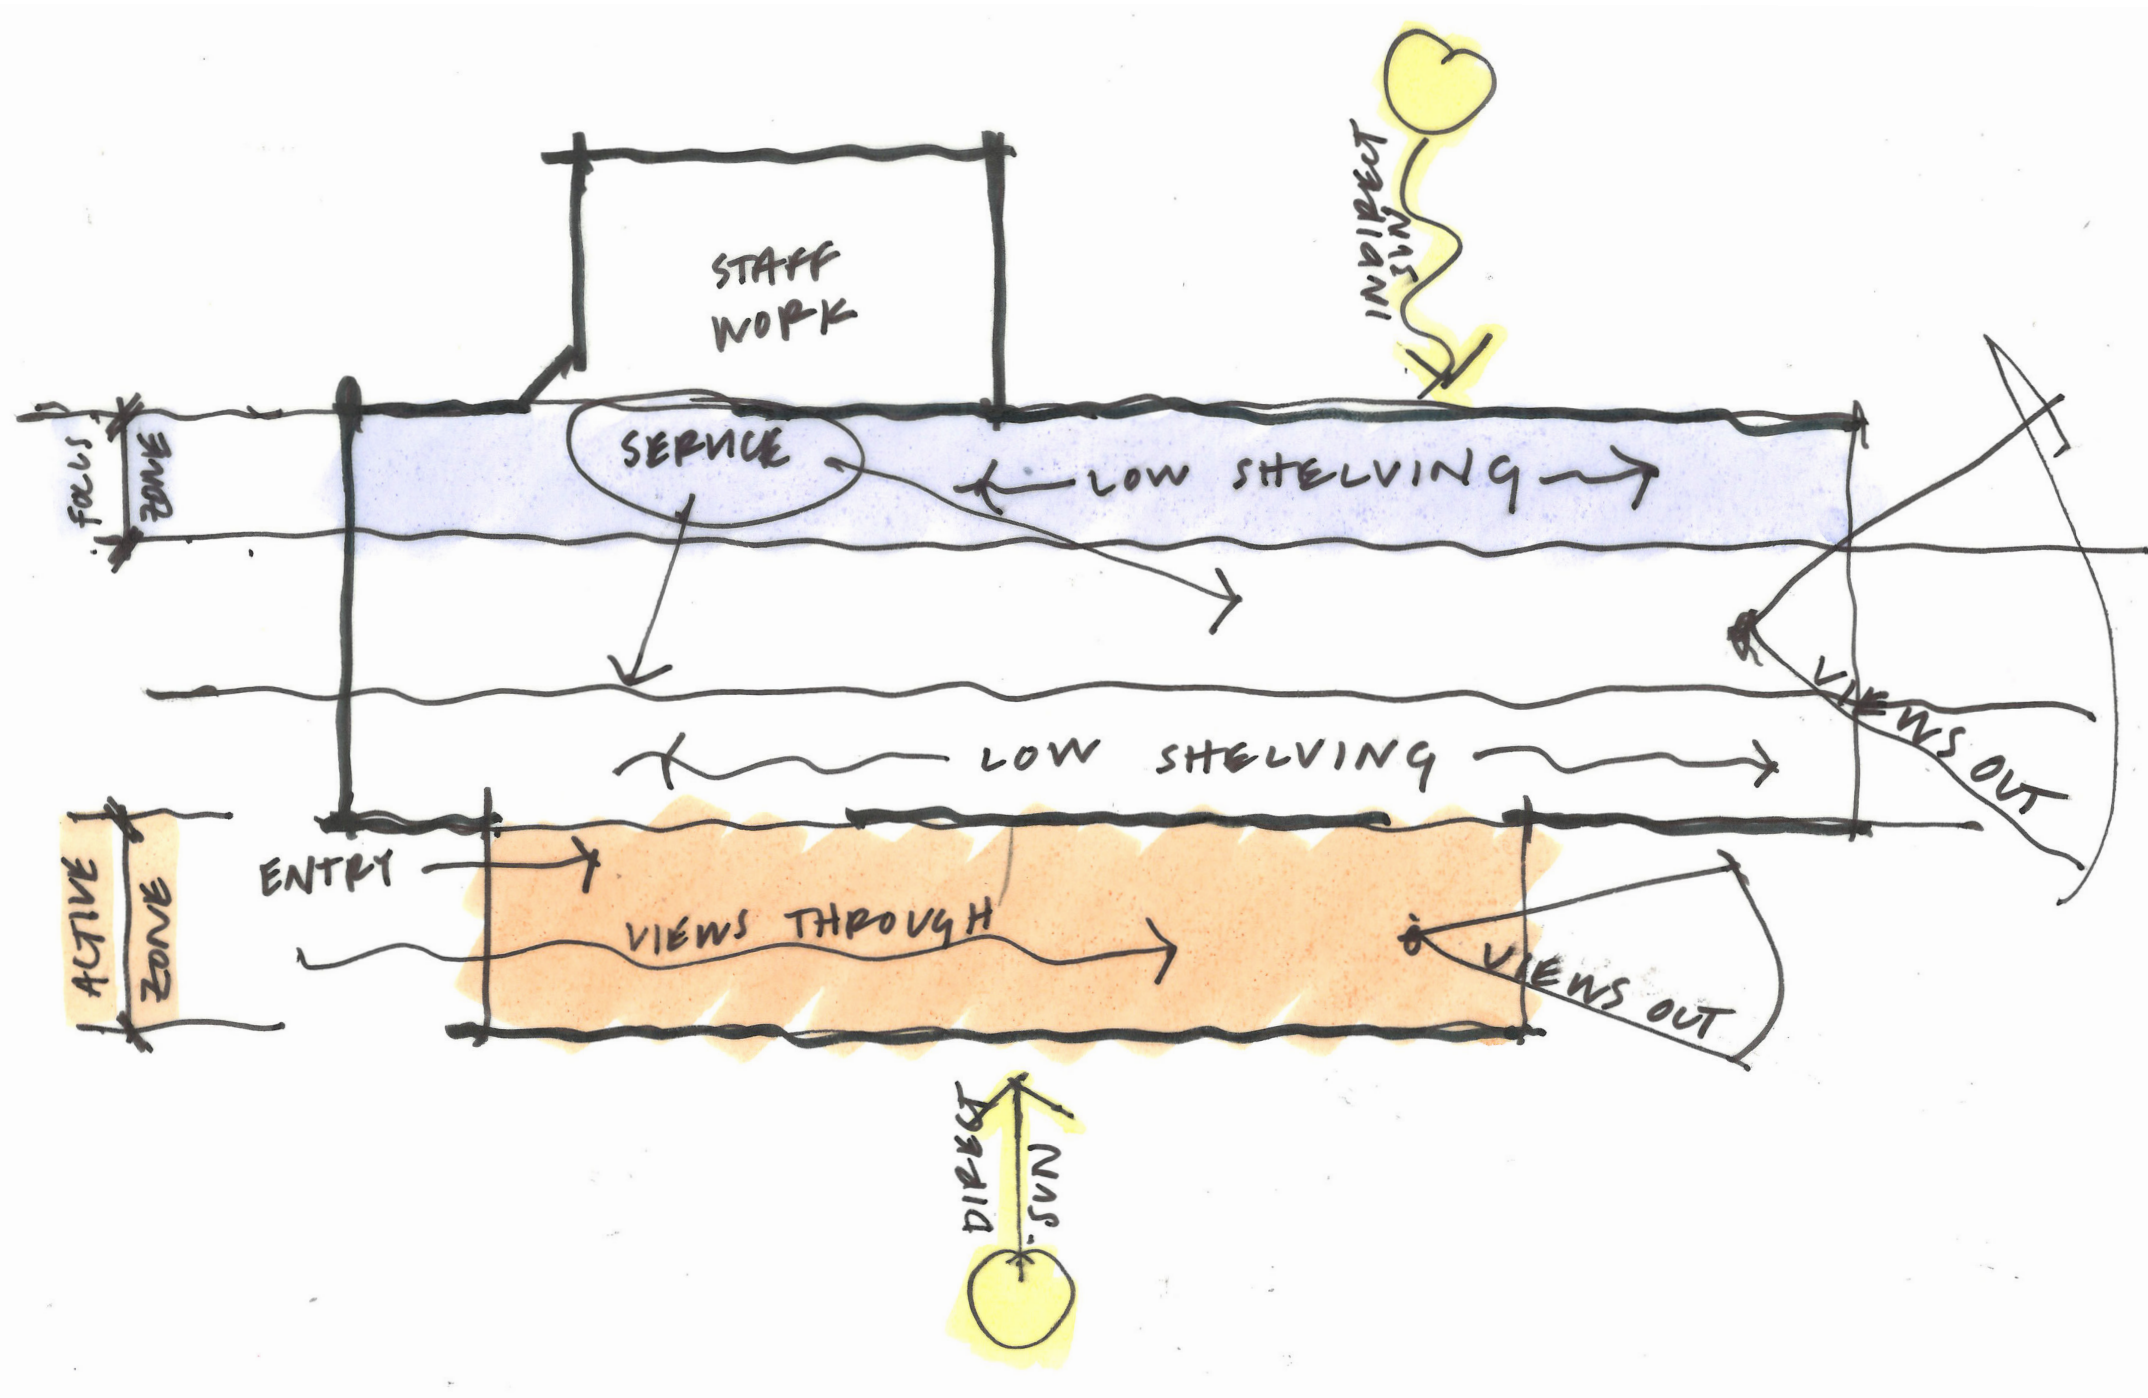 INDIRECT
SUN
STAFF
WORK
FOCUS
ZONE
SERVICE
LOW SHELVING
VIEWS OUT
LOW SHELVING
ACTIVE
ZONE
ENTRY
VIEWS THROUGH
VIEWS OUT
DIRECT
SUN